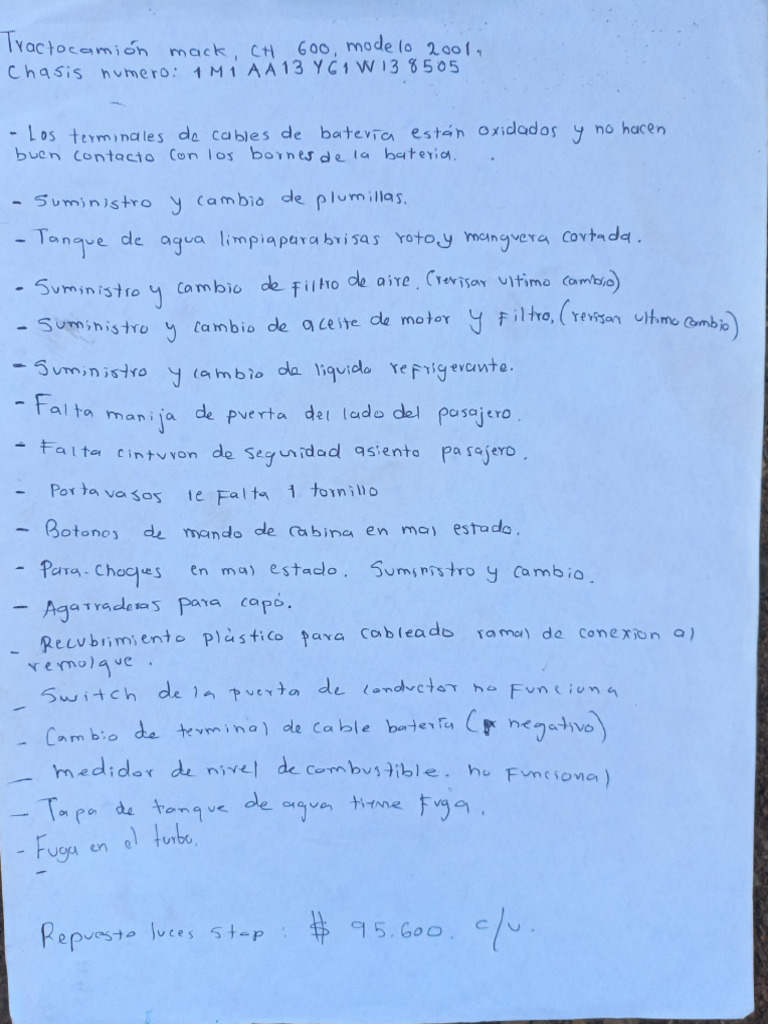 Tractocamión mack, CH 600, modelo 2001,
Chasis numero: 1M1AA13Y61W138505
- Los terminales de cables de batería están oxidados y no hacen
buen contacto con los bornes de la bateria.
- Suministro y cambio de plumillas.
- Tanque de agua limpiaparabrisas roto, y manguera cortada.
- Suministro y cambio de filtro de aire. (revisar ultimo cambio)
- Suministro y cambio de aceite de motor y Filtro, (revisar ultimo cambio)
- Suministro y cambio de liquido refrigerante.
- Falta manija de puerta del lado del pasajero.
- Falta cinturon de seguridad asiento pasajero.
- Portavasos le falta 1 tornillo
- Botones de mando de cabina en mal estado.
- Para-choques en mal estado. Suministro y cambio.
- Agarraderas para capó.
- Recubrimiento plástico para cableado ramal de conexion al
remolque.
- Switch de la puerta de conductor no Funciona
- Cambio de terminal de cable batería (negativo)
- medidor de nivel de combustible. no Funcional
- Tapa de tanque de agua tiene Fuga.
- Fuga en el turbo.
-
Repuesto luces stop: $ 95.600. c/u.